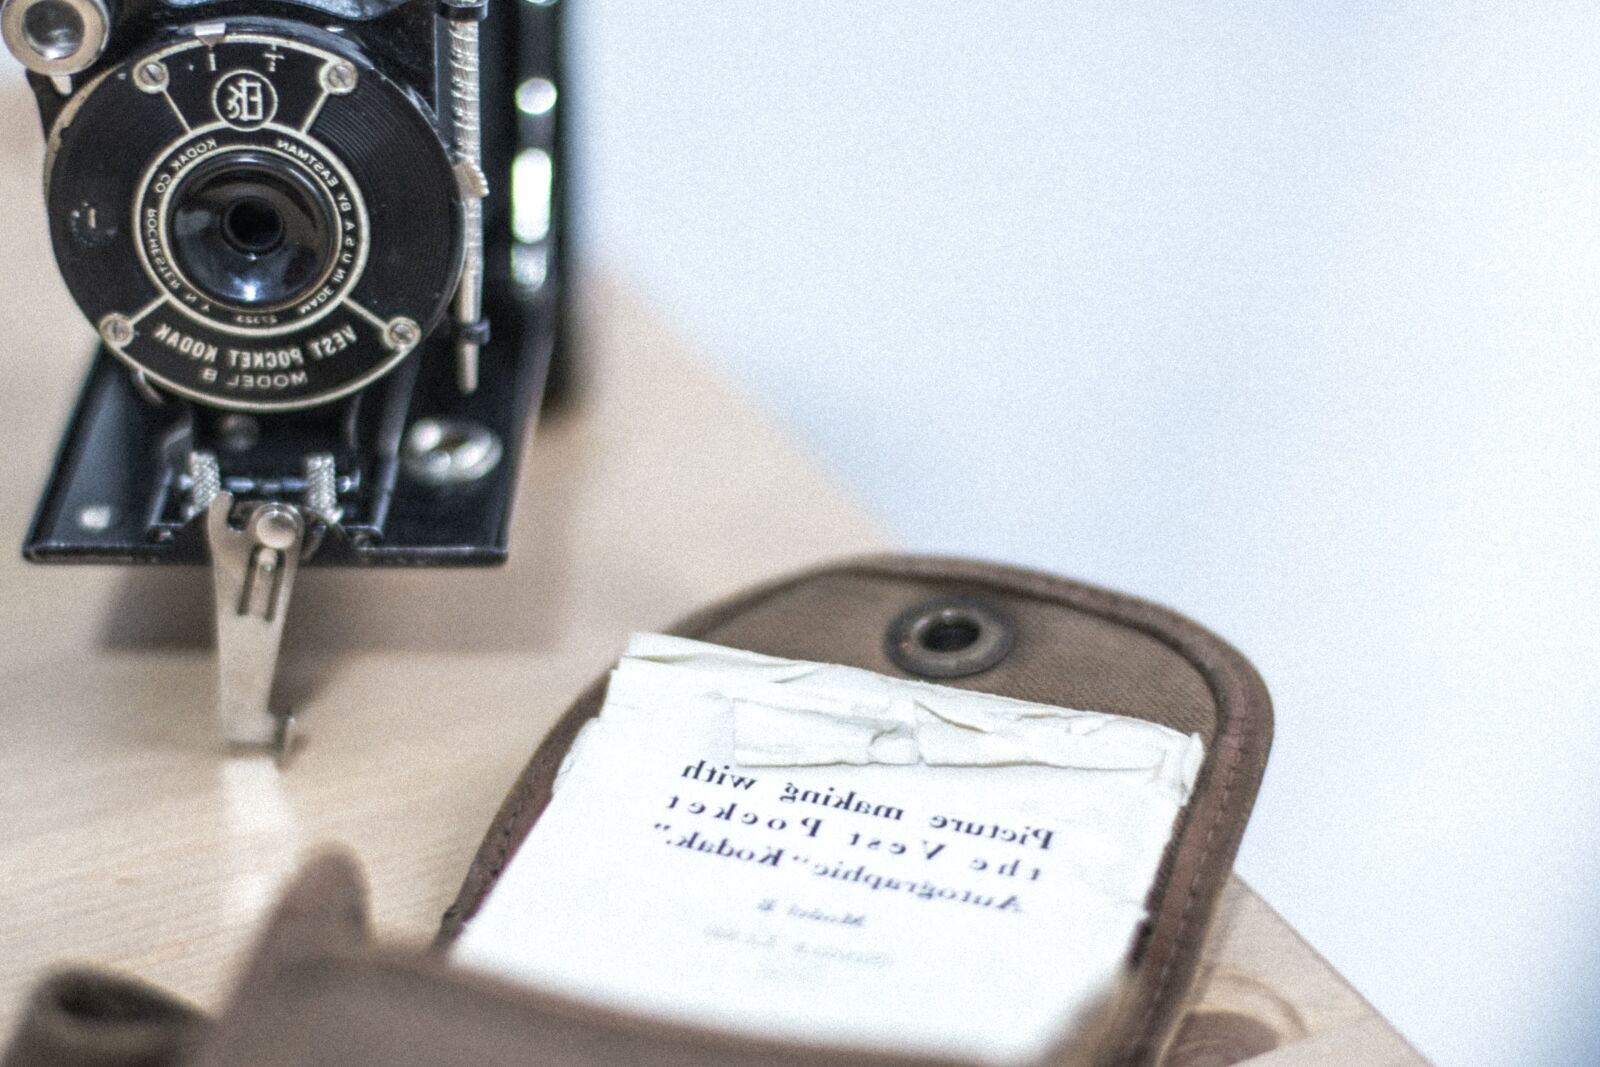 EK
KODAK CO ROCHESTER N Y
MADE IN U S A BY EASTMAN
VEST POCKET KODAK
MODEL B
Picture making with
the Vest Pocket
Autographic "Kodak."
Model B